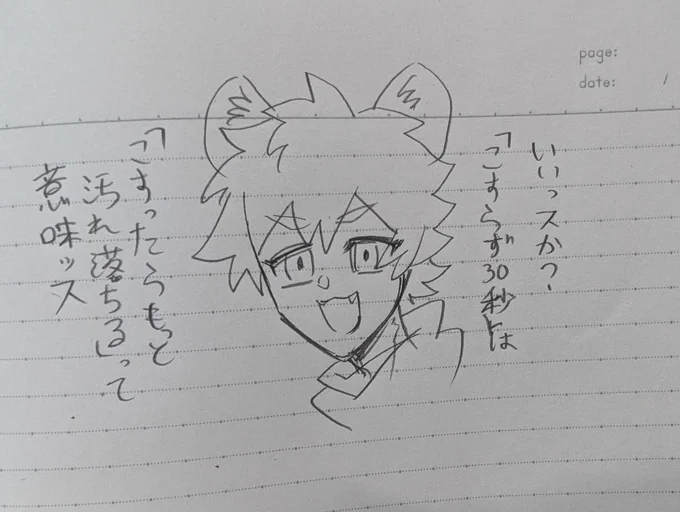 いいっスか?
「こすらず30秒」は
「こすったらもっと
汚れ落ちる」って
意味ッス
page:
date: /